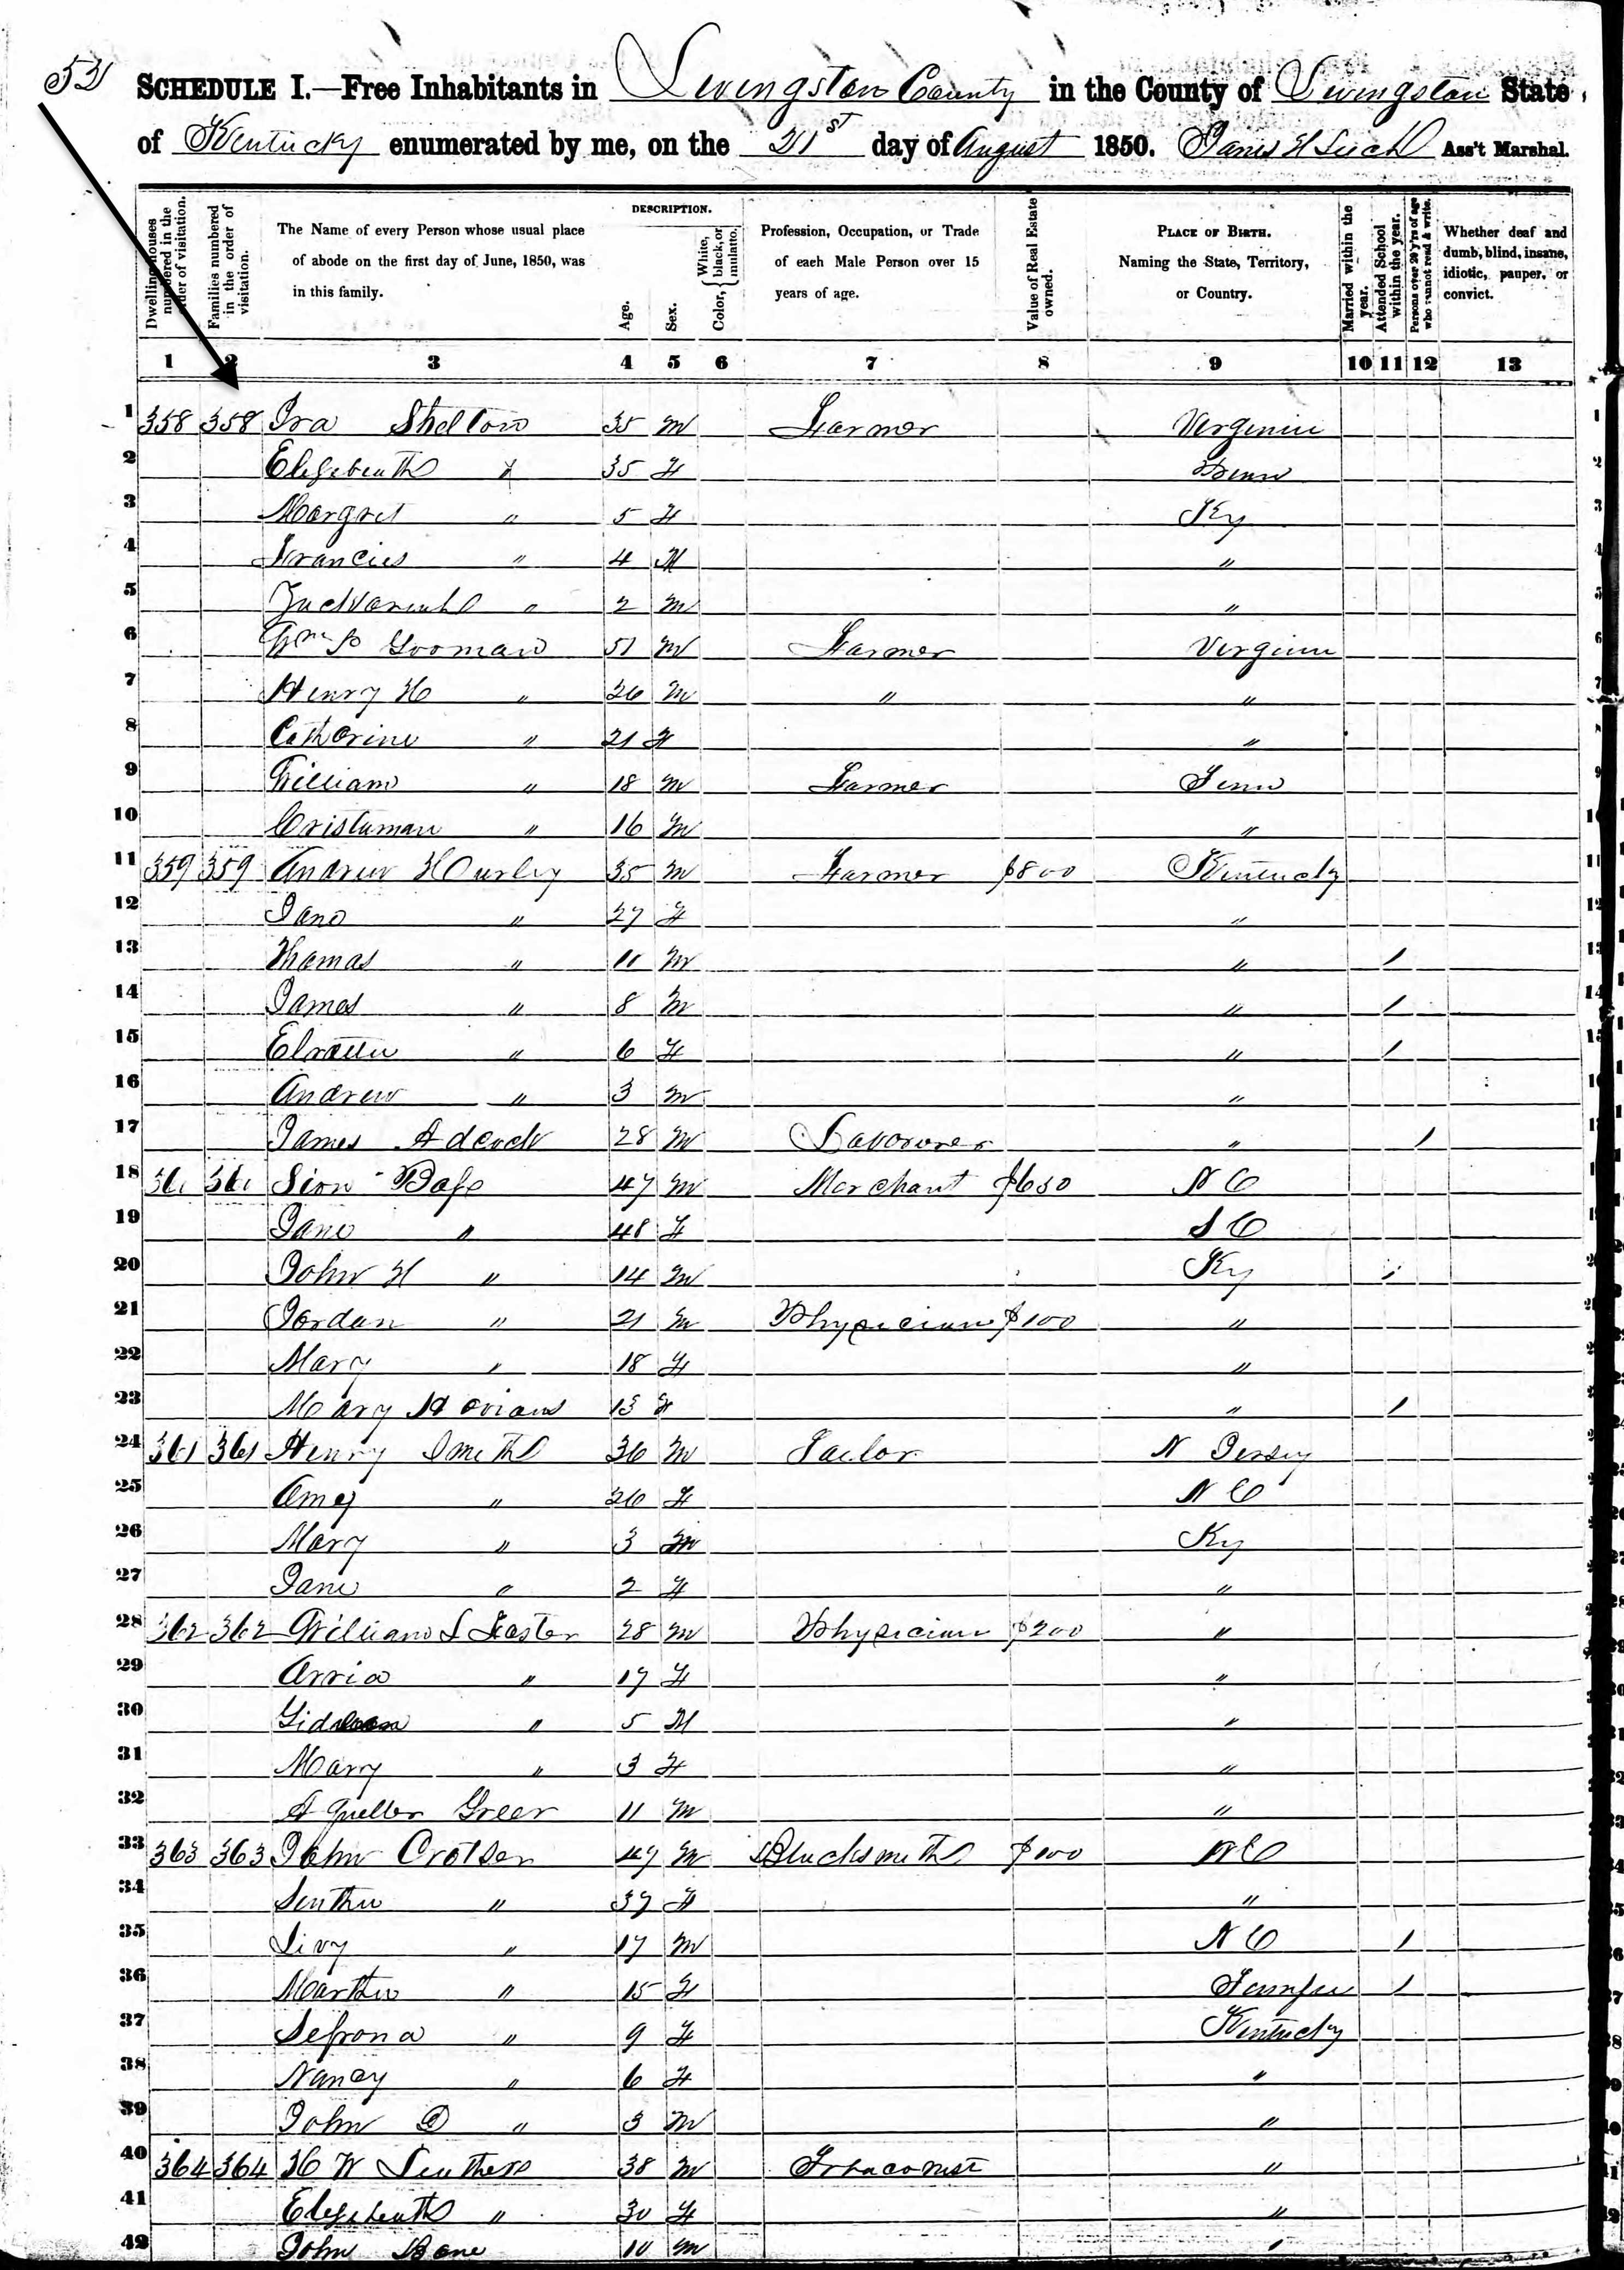 SCHEDULE I.—Free Inhabitants in Livingston County in the County of Livingston State
of Kentucky enumerated by me, on the 21st day of August 1850. James H Leech Ass't Marshal.
Dwelling-houses numbered in the order of visitation.
Families numbered in the order of visitation.
The Name of every Person whose usual place of abode on the first day of June, 1850, was in this family.
DESCRIPTION.
Age.
Sex.
Color, { White, black, or mulatto.
Profession, Occupation, or Trade of each Male Person over 15 years of age.
Value of Real Estate owned.
PLACE OF BIRTH. Naming the State, Territory, or Country.
Married within the year.
Attended School within the year.
Persons over 20 y'rs of age who cannot read & write.
Whether deaf and dumb, blind, insane, idiotic, pauper, or convict.
1 2 3 4 5 6 7 8 9 10 11 12 13
1 358 358 Ira Shelton 35 M Farmer Virginia 1
2 35 F 2
3 Margret " 5 F Ky 3
4 Francies " 4 M " 4
5 " 2 M " 5
6 Wm P 51 M Farmer Virginia 6
7 Henry H " 26 M " " 7
8 Catherine " 21 F "
9 William " 18 M Farmer Tenn 9
10 " 16 M "
11 359 359 Andrew Hurley 35 M Farmer $800 Kentucky 11
12 Jane " 27 F "
13 Thomas " 11 M " / 13
14 James " 8 M " / 14
15 " 6 F " / 15
16 Andrew " 3 M "
17 James Adcock 28 M " /
18 Sion 47 M Merchant $650 N C
19 Jane " 48 F S C
20 John H " 14 M Ky /
21 Jordan " 21 M Physician $100 "
22 Mary " 18 F "
23 Mary 13 F " /
24 361 361 Henry Smith 36 M Tailor N Jersey
25 Amy " 26 F N C
26 Mary " 3 Ky
27 Jane " 2 F "
28 362 362 William L 28 M Physician $200 "
29 " 17 F "
30 " 5 M "
31 Mary " 3 F "
32 Greer 11 M "
33 363 363 John 47 M Blacksmith $100 N C
34 " 37 F "
35 " 17 M N C /
36 Martha " 15 F /
37 " 9 F Kentucky
38 Nancy " 6 F "
39 John D " 3 M "
40 364 364 H W 38 M "
41 " 30 F "
42 John 10 M "